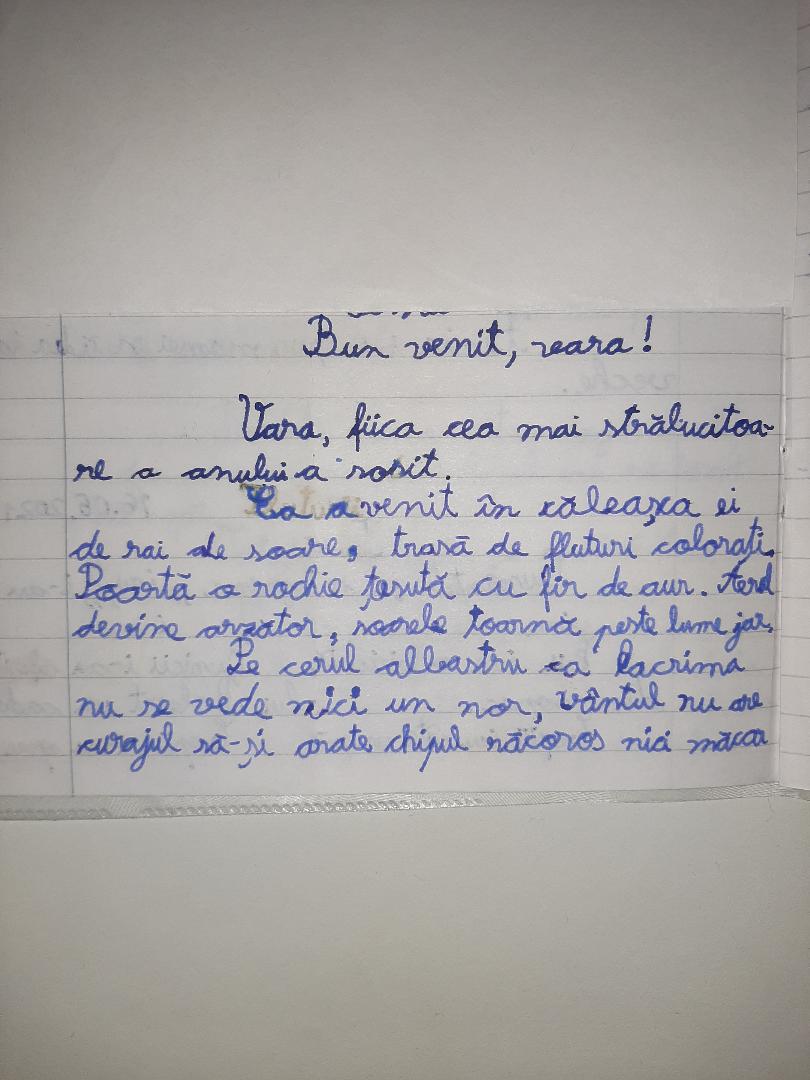 Bun venit, vara!
Vara, fiica cea mai strălucitoa-
re a anului a sosit.
Ea a venit în căleașca ei
de rai de soare, trasă de fluturi colorați.
Poartă o rochie țesută cu fir de aur. Aerul
devine arzător, soarele toarnă peste lume jar.
Pe cerul albastru ca lacrima
nu se vede nici un nor, vântul nu are
curajul să-și arate chipul răcoros nici măcar